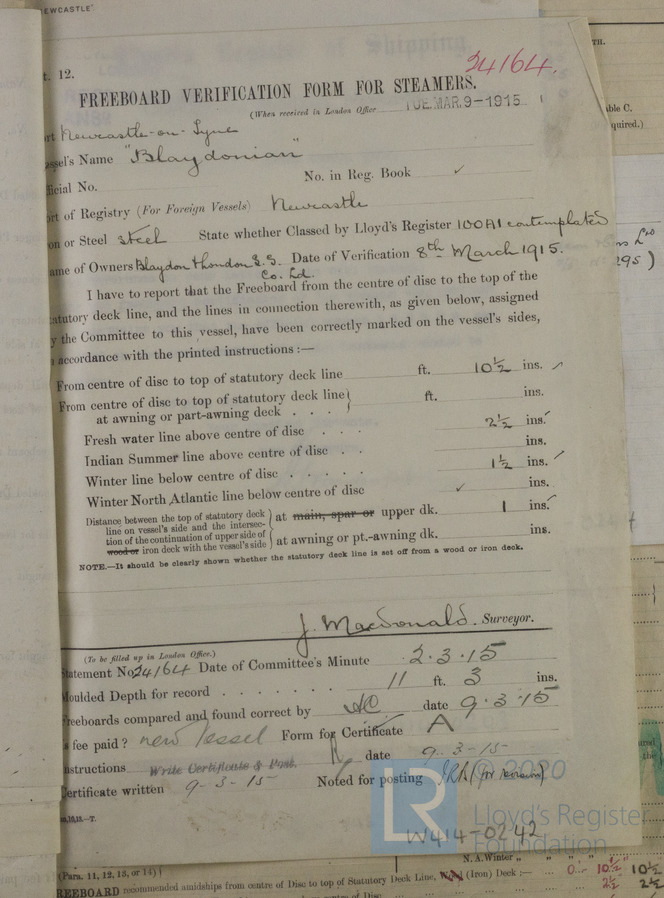 EWCASTLE"
t. 12.
24164.
FREEBOARD VERIFICATION FORM FOR STEAMERS.
(When received in London Office TUE. MAR. 9-1915
rt Newcastle-on-Tyne
essel's Name "Blaydonian"
ficial No. No. in Reg. Book ✓
ort of Registry (For Foreign Vessels) Newcastle
on or Steel steel State whether Classed by Lloyd's Register 100A1 contemplated
ame of Owners Blaydon London S.S. Co. Ld. Date of Verification 8th March 1915.
I have to report that the Freeboard from the centre of disc to the top of the
tatutory deck line, and the lines in connection therewith, as given below, assigned
y the Committee to this vessel, have been correctly marked on the vessel's sides,
accordance with the printed instructions :—
From centre of disc to top of statutory deck line ft. 10½ ins. ✓
From centre of disc to top of statutory deck line } ft. ins.
at awning or part-awning deck . . .
Fresh water line above centre of disc . . . 2½ ins. ✓
Indian Summer line above centre of disc . . ins.
Winter line below centre of disc . . . . . 1½ ins. ✓
Winter North Atlantic line below centre of disc ✓ ins.
Distance between the top of statutory deck
line on vessel's side and the intersec-
tion of the continuation of upper side of
wood or iron deck with the vessel's side
} at main, spar or upper dk. 1 ins. ✓
at awning or pt.-awning dk. ins.
NOTE.—It should be clearly shown whether the statutory deck line is set off from a wood or iron deck.
J. MacDonald. Surveyor.
(To be filled up in London Office.)
Statement No. 24164 Date of Committee's Minute 2.3.15
Moulded Depth for record . . . . . . . 11 ft. 3 ins.
Freeboards compared and found correct by date 9.3.15
s fee paid? new vessel Form for Certificate A
nstructions Write Certificate & Post. date 9-3-15-
Certificate written 9-3-15 Noted for posting
© 2020
LR
Lloyd's Register
Foundation
W414-0242
TH.
able C.
quired.)
295)
N.A. Winter „
(Para. 11, 12, 13, or 14)
FREEBOARD recommended amidships from centre of Disc to top of Statutory Deck Line, Wood (Iron) Deck :— 10½ 10½
2½ 2½